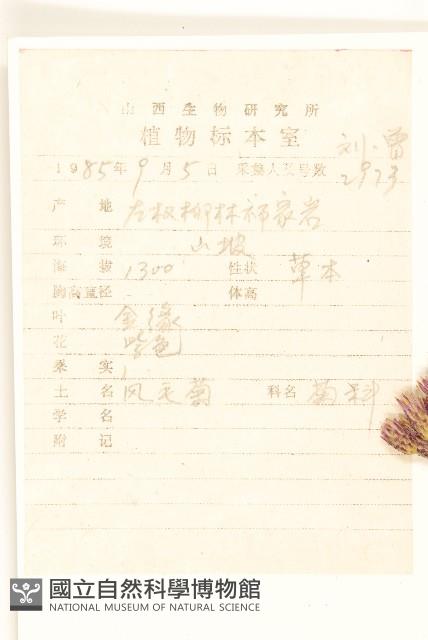 山西生物研究所
植物标本室
1985年9月5日 采集人及号数 刘、曾 2973
产地 左权柳林祁家岩
环境 山坡
海拔 1300 性状 草本
胸高直径 体高
叶 全缘
花 紫色
果实
土名 风毛菊 科名 菊科
学名
附记
國立自然科學博物館
NATIONAL MUSEUM OF NATURAL SCIENCE